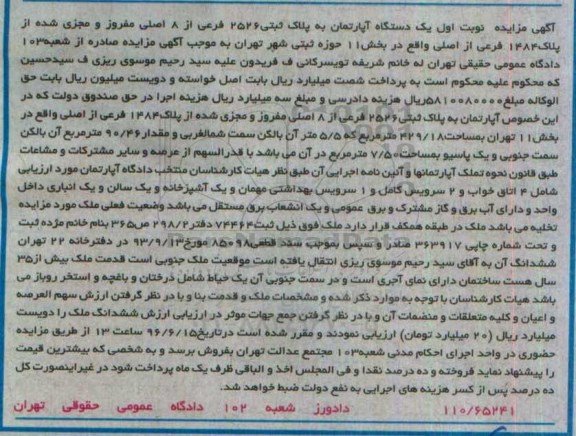 آگهی مزایده نوبت اول یک دستگاه آپارتمان به پلاک ثبتی۲۵۲۶ فرعی از ۸ اصلی مفروز و مجزی شده از
پلاک۱۴۸۴ فرعی از اصلی واقع در بخش۱۱ حوزه ثبتی شهر تهران به موجب آگهی مزایده صادره از شعبه۱۰۳
دادگاه عمومی حقیقی تهران له خانم شریفه تویسرکانی ف فریدون علیه سید رحیم موسوی ریزی ف سیدحسین
که محکوم علیه محکوم است به پرداخت شصت میلیارد ریال بابت اصل خواسته و دویست میلیون ریال بابت حق
الوکاله مبلغ۵۸۱۰۰۸۰۰۰۰ریال هزینه دادرسی و مبلغ سه میلیارد ریال هزینه اجرا در حق صندوق دولت که در
این خصوص آپارتمان به پلاک ثبتی۲۵۲۶ فرعی از ۸ اصلی مفروز و مجزی شده از پلاک۱۴۸۴ فرعی از اصلی واقع در
بخش۱۱ تهران بمساحت۴۲۹/۱۸ مترمربع که ۵/۵ متر آن بالکن سمت شمالغربی و مقدار۹۰/۴۶ مترمربع آن بالکن
سمت جنوبی و یک پاسیو بمساحت۷/۵۰ مترمربع در آن می باشد با قدرالسهم از عرصه و سایر مشترکات و مشاعات
طبق قانون نحوه تملک آپارتمانها و آئین نامه اجرایی آن طبق نظر هیات کارشناسان منتخب دادگاه آپارتمان مورد ارزیابی
شامل ۴ اتاق خواب و ۲ سرویس کامل و ۱ سرویس بهداشتی مهمان و یک آشپزخانه و یک سالن و یک انباری داخل
واحد و دارای آب برق و گاز مشترک و برق عمومی و یک انشعاب برق مستقل می باشد وضعیت فعلی ملک مورد مزایده
تخلیه می باشد ملک در طبقه همکف قرار دارد ملک فوق ذیل ثبت۷۴۴۶۴ دفتر۲۹۸/۲ ص۳۶۵ بنام خانم مژده ثبت
و تحت شماره چاپی ۳۶۳۹۱۷ صادر و سپس بموجب سند قطعی۸۵۰۹۸ مورخ۹۳/۹/۱۳ در دفترخانه ۲۲ تهران
ششدانگ آن به آقای سید رحیم موسوی ریزی انتقال یافته است موقعیت ملک جنوبی است قدمت ملک بیش از۳۵
سال هست ساختمان دارای نمای آجری است و در سمت جنوبی آن یک حیاط شامل درختان و باغچه و استخر روباز می
باشد هیات کارشناسان با توجه به موارد ذکر شده و مشخصات ملک و قدمت بنا و با در نظر گرفتن ارزش سهم العرصه
و اعیان و کلیه متعلقات و منضمات آن و با در نظر گرفتن جمع جهات موثر در ارزیابی ارزش ششدانگ ملک را دویست
میلیارد ریال (۲۰ میلیارد تومان) ارزیابی نمودند و مقرر شده است درتاریخ۹۶/۶/۱۵ ساعت ۱۳ از طریق مزایده
حضوری در واحد اجرای احکام مدنی شعبه۱۰۳ مجتمع عدالت تهران بفروش برسد و به شخصی که بیشترین قیمت
را پیشنهاد نماید فروخته و ده درصد نقدا و فی المجلس اخذ و الباقی ظرف یک ماه پرداخت شود در غیر اینصورت کل
ده درصد پس از کسر هزینه های اجرایی به نفع دولت ضبط خواهد شد.
۱۱۰/۶۵۲۴۱ دادورز شعبه ۱۰۲ دادگاه عمومی حقوقی تهران